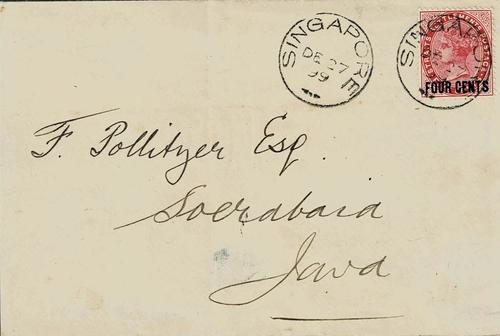 SINGAPORE
DE 27
99
SINGAPORE
FOUR CENTS
F. Pollitzer Esq.
Soerabaia
Java